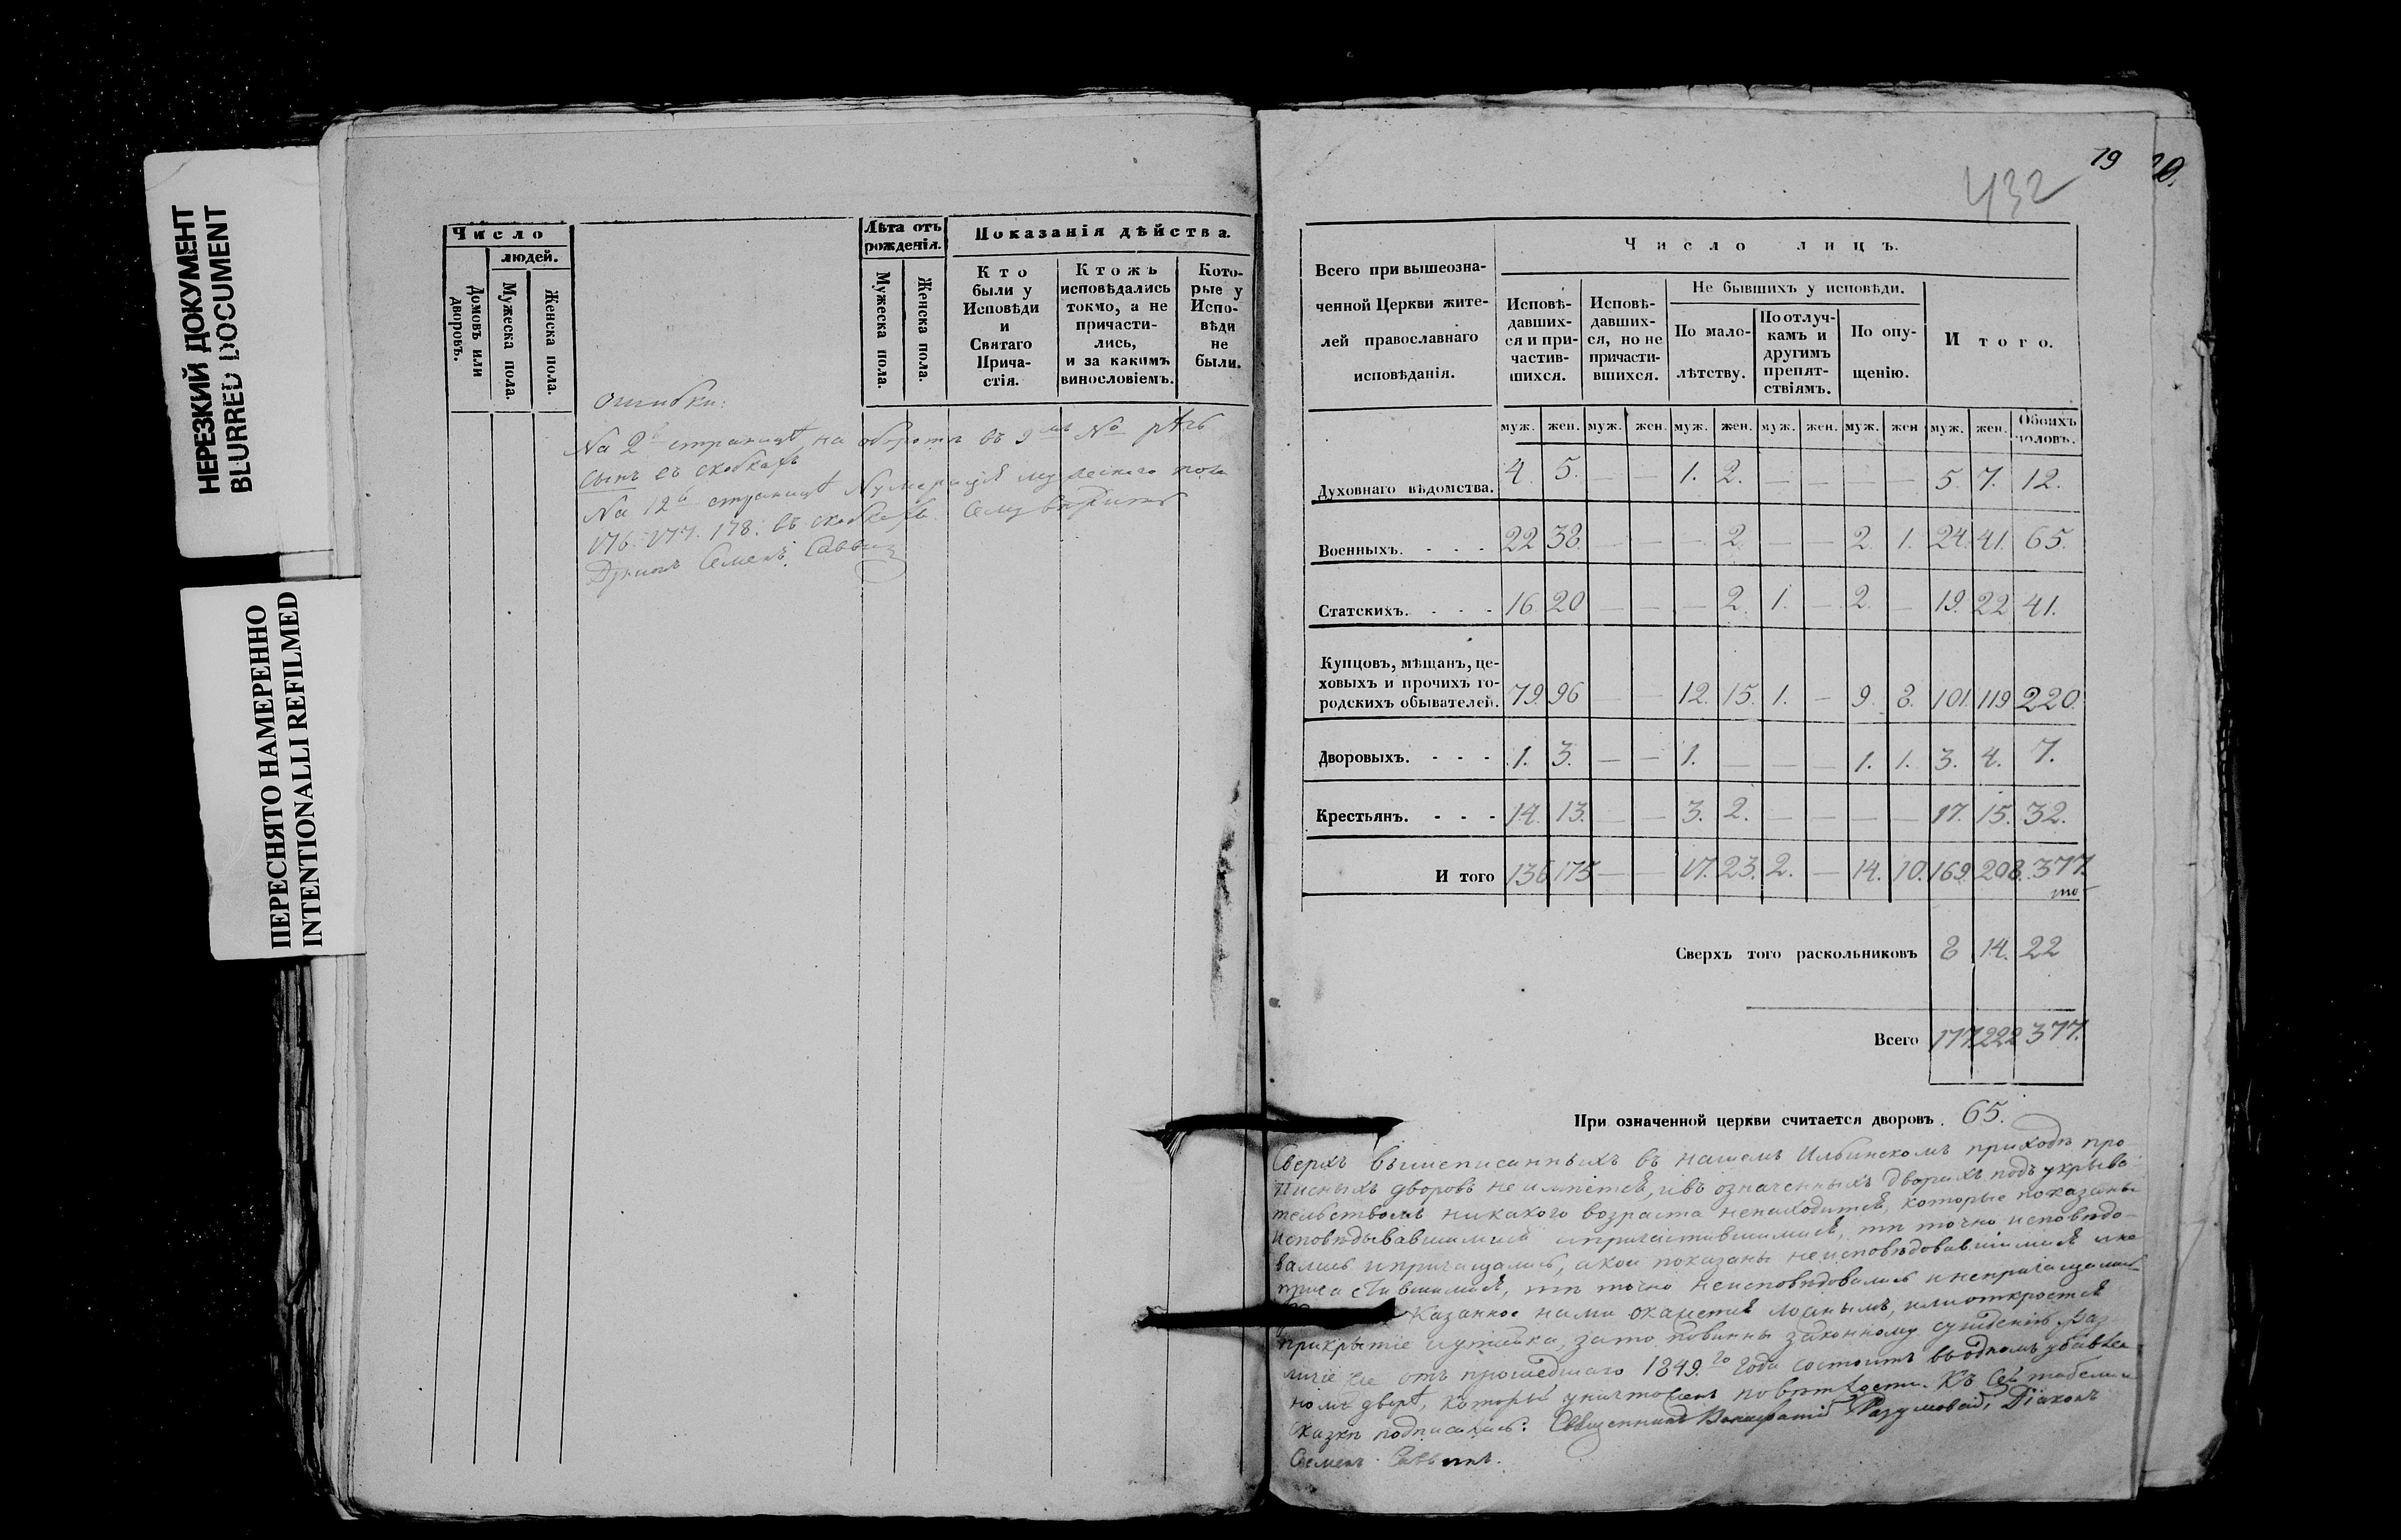 НЕРЕЗКИЙ ДОКУМЕНТ
BLURRED DOCUMENT
ПЕРЕСНЯТО НАМЕРЕННО
INTENTIONALLI REFILMED
Число
людей.
Домовъ или дворовъ.
Мужеска пола.
Женска пола.
Лѣта отъ рожденія.
Мужеска пола.
Женска пола.
Показанія дѣйства.
Кто были у Исповѣди и Святаго Прича-стія.
Ктожъ исповѣдались токмо, а не причасти-лись, и за какимъ винословіемъ.
Кото-рые у Испо-вѣди не были.
Ошибки:
На 2й страницѣ, на оборотѣ въ 9мъ №
сынъ въ скобкахъ
На 12й страницѣ Нумерація мужескаго пола
176. 177. 178. въ скобкахъ.
Дьяконъ Семенъ Саввинъ
19
432
Всего при вышеозна-
ченной Церкви жите-
лей православнаго
исповѣданія.
Число лицъ.
Исповѣ-давших-ся и при-частив-шихся.
Исповѣ-давших-ся, но не причасти-вшихся.
Не бывшихъ у исповѣди.
По мало-лѣтству.
По отлуч-камъ и другимъ препят-ствіямъ.
По опу-щенію.
Итого.
муж. жен. муж. жен. муж. жен. муж. жен. муж. жен муж. жен. Обоихъ половъ.
Духовнаго вѣдомства. 4. 5. — — 1. 2. — — — — 5. 7. 12.
Военныхъ. - - - 22 38. — — — 2. — — 2. 1. 24. 41. 65.
Статскихъ. - - - 16. 20 — — — 2. 1. — 2. — 19. 22. 41.
Купцовъ, мѣщанъ, це-
ховыхъ и прочихъ го-
родскихъ обывателей. 79. 96 — — 12. 15. 1. — 9. 8. 101. 119 220.
Дворовыхъ. - - - 1. 3. — — 1. — — — 1. 1. 3. 4. 7.
Крестьянъ. - - - 14. 13. — — 3. 2. — — — — 17. 15. 32.
И того 136 175 — — 17. 23. 2. — 14. 10. 169. 208. 377.
Сверхъ того раскольниковъ 8 14. 22
Всего 177. 222 377.
При означенной церкви считается дворовъ. 65.
Сверхъ вышеписанныхъ въ нашемъ Ильинскомъ приходѣ про-
писныхъ дворовъ не имѣется, и въ означенныхъ дворахъ подъ укрыва-
тельствомъ никакого возраста ненаходится, которые показаны
исповѣдывавшимися и причастившимися, тѣ точно исповѣдо-
вались и причащались, а кои показаны неисповѣдовавшимися и не
причастившимися, тѣ точно неисповѣдовались и непричащались
казанное нами окажется ложнымъ, или откроется
прикрытіе и утайка, за то повинны законному сужденію. Раз-
личіе же отъ прошедшаго 1849.го года состоитъ въ одномъ убавлен-
номъ дворѣ, который уничтоженъ по ветхости. Къ сей табели и
сказкѣ подписались: Священникъ Разумовскій, Діаконъ
Семенъ Саввинъ.